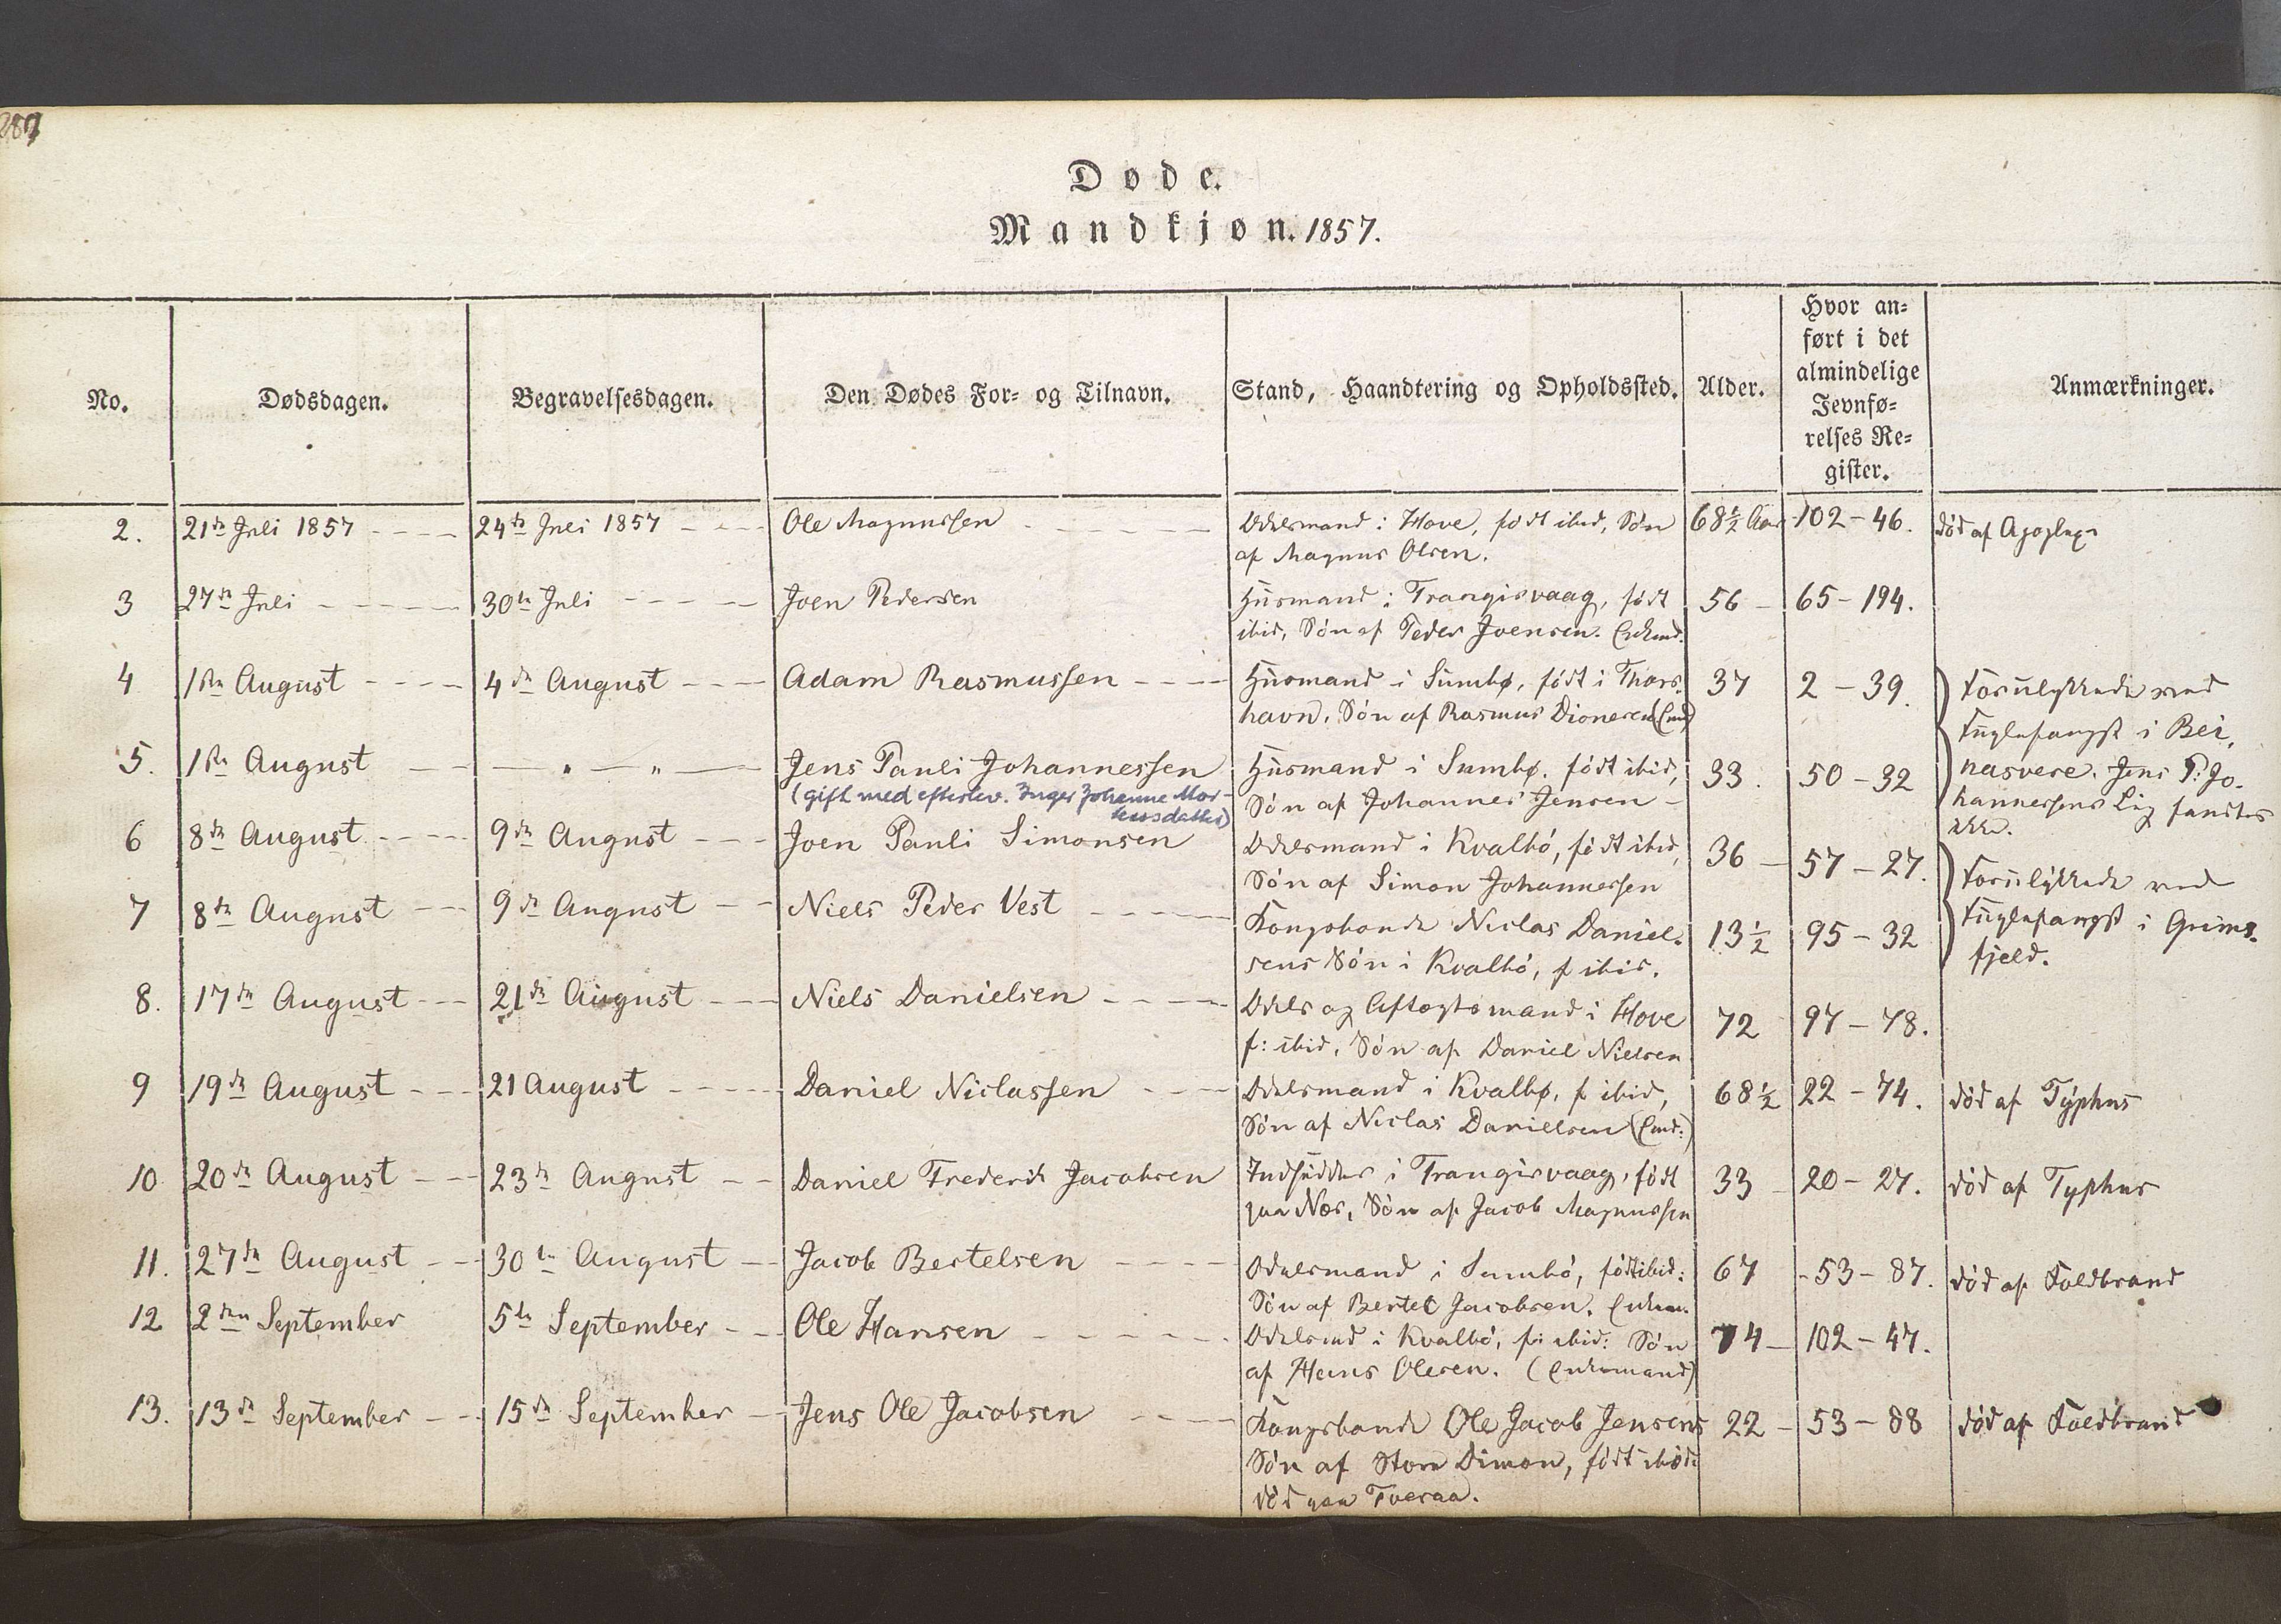 287
Døde.
Mandkjøn. 1857.
No.
Dødsdagen.
Begravelsesdagen.
Den Dødes For- og Tilnavn.
Stand, Haandtering og Opholdssted.
Alder.
Hvor an-
ført i det
almindelige
Jevnfø-
relses Re-
gister.
Anmærkninger.
2. 21de Juli 1857 24de Juli 1857 Ole Magnussen Odelsmand i Hove, født ibid, Søn 68½ Aar 102-46. død af Apoplexi
af Magnus Olsen.
3 27de Juli 30te Juli Joen Pedersen Huusmand i Trangisvaag, født 56 65-194.
ibid, Søn af Peder Joensen. Enkemd.
4 1ste August 4de August Adam Rasmussen Huusmand i Sumbø, født i Thors- 37 2-39. Forulykkede ved
havn, Søn af Rasmus Dionesen (Emd) Fuglefangst i Bei-
5. 1ste August — " — " — Jens Pauli Johannessen Huusmand i Sumbø. født ibid, 33. 50-32 nasvere. Jens P: Jo-
(gift med efterlev. Inger Johanne Mor- Søn af Johannes Jensen - hannessens Lig fandtes
kusdatter) ikke.
6 8de August 9de August Joen Pauli Simonsen Odelsmand i Kvalbø, født ibid, 36 57-27. Forulykkede ved
Søn af Simon Johannessen
7 8de August 9de August Niels Peder Vest Kongsbonde Niclas Daniel- 13½ 95-32 Fuglefangst i Grims-
sens Søn i Kvalbø, f ibid. fjeld.
8. 17de August 21de August Niels Danielsen Odels og Aftægtsmand i Hove 72 97-78.
f: ibid, Søn af Daniel Nielsen
9 19de August 21 August Daniel Niclassen Odelsmand i Kvalbø, f ibid, 68½ 22-74. død af Typhus
Søn af Niclas Danielsen (Emd:)
10 20de August 23de August Daniel Frederik Jacobsen Indsidder i Trangisvaag, født 33 20-27. død af Typhus
paa Næs, Søn af Jacob Magnussen
11. 27de August 30te August Jacob Bertelsen Odelsmand i Sumbø, født ibid: 67 53-87. død af Koldbrand
Søn af Bertel Jacobsen. Enkem.
12 2den September 5te September Ole Hansen Odelsmd i Kvalbø, f: ibid: Søn 74 102-47.
af Hans Olesen. (Enkemand)
13. 13de September 15de September Jens Ole Jacobsen Kongsbonde Ole Jacob Jensens 22 53-88 død af Koldbrand
Søn af Store Dimon, født ibid:
død paa Tveraa.